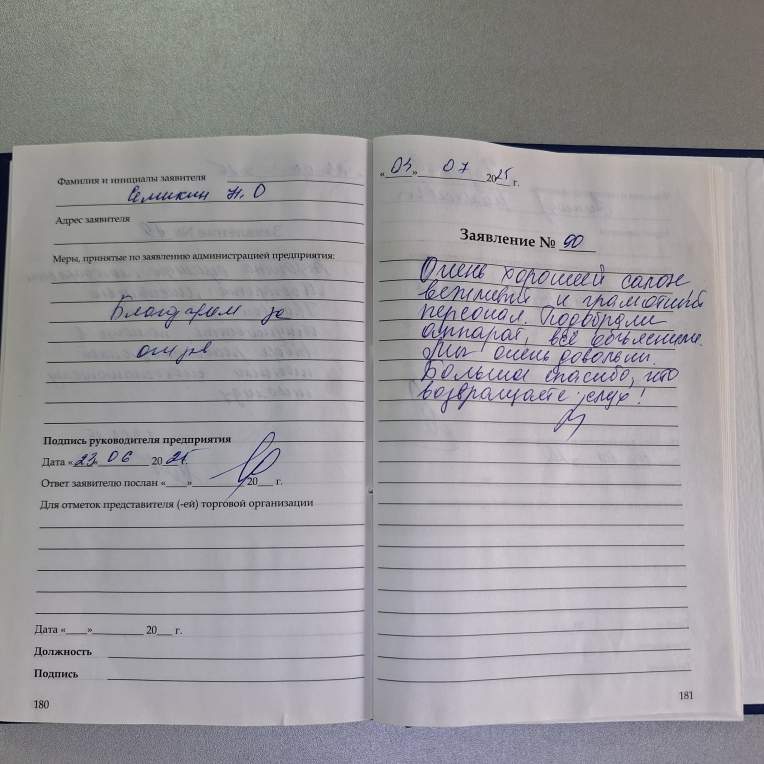 Фамилия и инициалы заявителя
Семикин Н. О
Адрес заявителя
Меры, принятые по заявлению администрацией предприятия:
Благодарим за
отзыв
Подпись руководителя предприятия
Дата «23» 06 2025г.
Ответ заявителю послан «___»__________20___ г.
Для отметок представителя (-ей) торговой организации
Дата «____»__________ 20___ г.
Должность
Подпись
180
«03» 07 2025 г.
Заявление № 90
Очень хороший салон
вежливый и грамотный
персонал. Подобрали
аппарат, всё объяснили.
Мы очень довольны.
Большое спасибо, что
возвращаете слух!
181